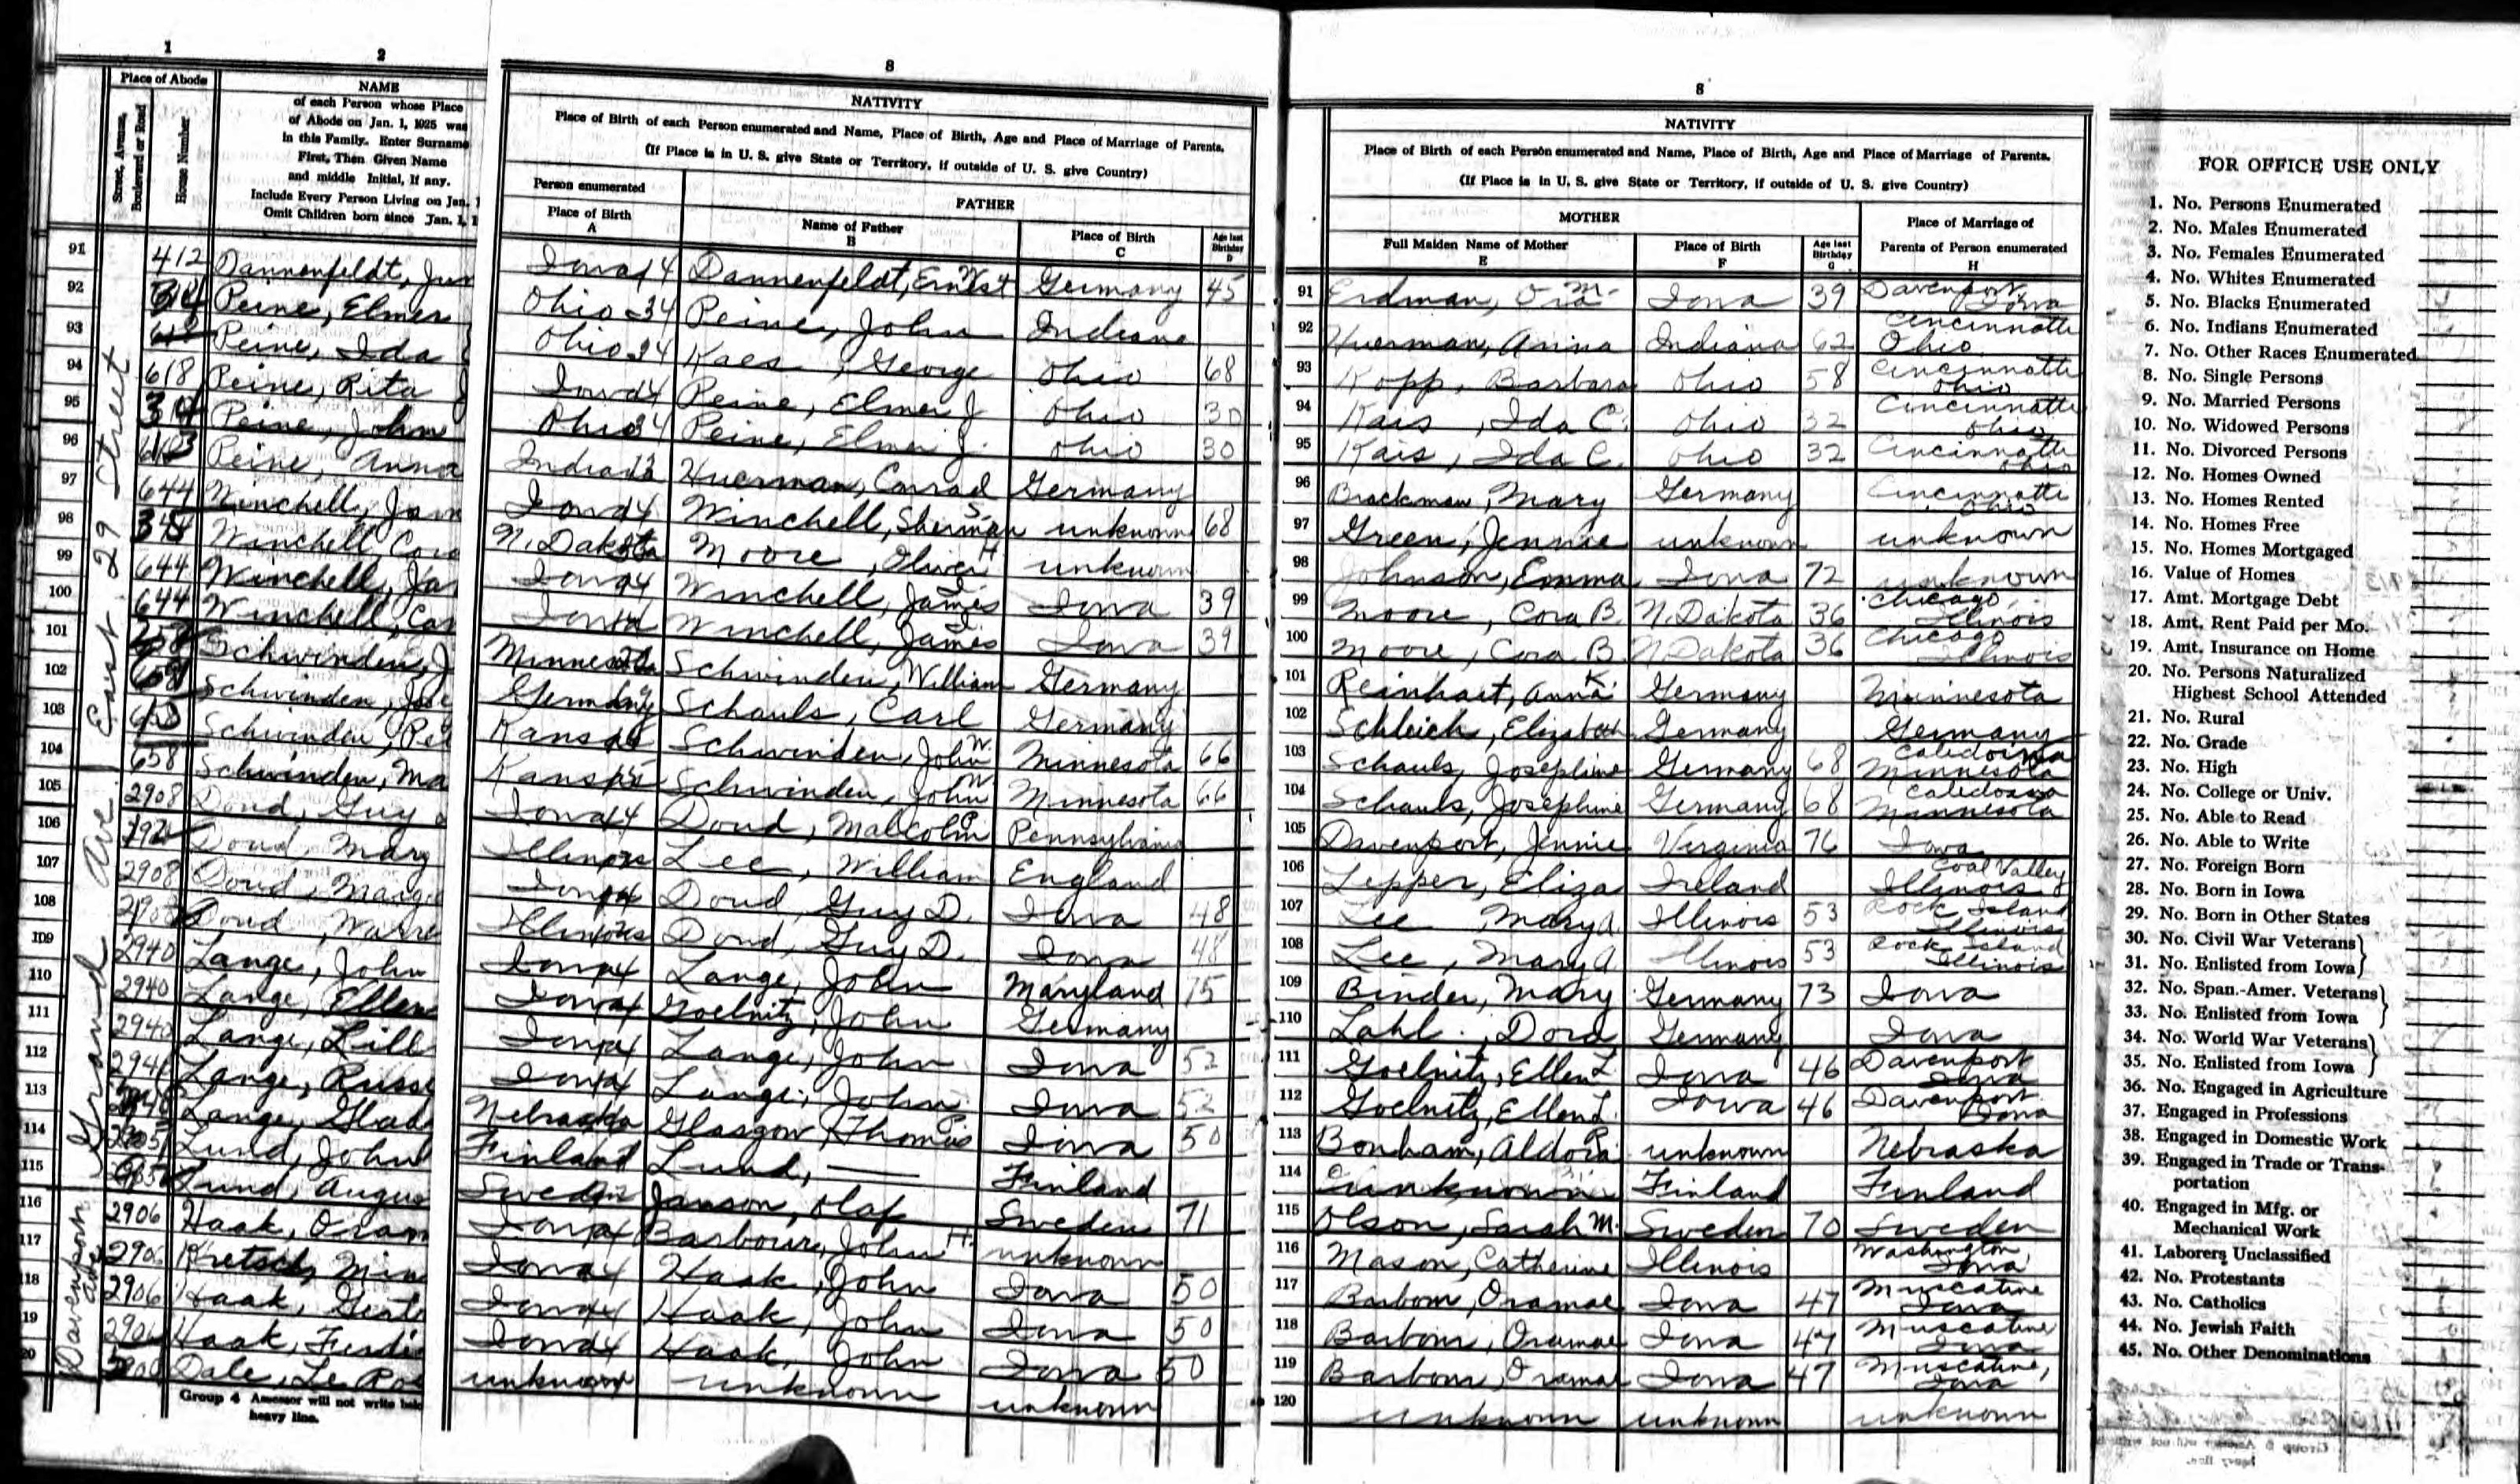 1
2
Place of Abode
Street, Avenue, Boulevard or Road
House Number
NAME
of each Person whose Place
of Abode on Jan. 1, 1925 was
in this Family. Enter Surname
First, Then Given Name
and middle Initial, if any.
Include Every Person Living on Jan. 1
Omit Children born since Jan. 1, 1
East 29 Street
Grand Ave.
Davenport Ave.
91 412 Dannenfeldt, Jun
92 Peine, Elmer
93 Peine, Ida
94 618 Peine, Rita J
95 Peine, John
96 Peine, Anna
97 644 Winchell, Jam
98 Winchell, Cora
99 644 Winchell, Ja
100 644 Winchell, Car
101 Schwinden, J
102 Schwinden, Jose
103 Schwinden, Pet
104 658 Schwinden, Ma
105 2908 Doud, Guy
106 Doud, Mary
107 2908 Doud, Marga
108 2908 Doud, Warre
109 2940 Lange, John
110 2940 Lange, Ellen
111 2940 Lange, Lill
112 2940 Lange, Russe
113 Lange, Glad
114 Lund, John
115 Lund, Augus
116 2906 Haak, Oram
117 2906 Kretsch, Min
118 2906 Haak, Gertr
19 2906 Haak, Ferdi
20 Dale, Le Ro
Group 4 Assessor will not write bel
heavy line.
8
NATIVITY
Place of Birth of each Person enumerated and Name, Place of Birth, Age and Place of Marriage of Parents.
(If Place is in U. S. give State or Territory, if outside of U. S. give Country)
Person enumerated
FATHER
Place of Birth
A
Name of Father
B
Place of Birth
C
Age last Birthday
D
Iowa 14 Dannenfeldt, Ernst W Germany 45
Ohio 34 Peine, John Indiana
Ohio 34 Kaes, George Ohio 68
Iowa 14 Peine, Elmer J Ohio 30
Ohio 34 Peine, Elmer J. Ohio 30
Indiana Huerman, Conrad Germany
Iowa 14 Winchell, Sherman S. unknown 68
N. Dakota Moore, Oliver H unknown
Iowa 14 Winchell, James I. Iowa 39
Iowa 14 Winchell, James I. Iowa 39
Minnesota Schwinden, William Germany
Germany Schauls, Carl Germany
Kansas Schwinden, John W. Minnesota 66
Kansas Schwinden, John W. Minnesota 66
Iowa 14 Doud, Malcolm P. Pennsylvania
Illinois Lee, William England
Iowa 14 Doud, Guy D. Iowa 48
Illinois Doud, Guy D. Iowa 48
Iowa 14 Lange, John Maryland 75
Iowa 14 Goelnitz, John Germany
Iowa 14 Lange, John Iowa 52
Iowa 14 Lange, John Iowa 52
Nebraska Glasgow, Thomas P. Iowa 50
Finland Lund, — Finland
Sweden Janson, Olaf Sweden 71
Iowa 14 Barbour, John H. unknown
Iowa 14 Haak, John Iowa 50
Iowa 14 Haak, John Iowa 50
Iowa 14 Haak, John Iowa 50
unknown unknown unknown
8
NATIVITY
Place of Birth of each Person enumerated and Name, Place of Birth, Age and Place of Marriage of Parents.
(If Place is in U. S. give State or Territory, if outside of U. S. give Country)
MOTHER
Full Maiden Name of Mother
E
Place of Birth
F
Age last Birthday
G
Place of Marriage of
Parents of Person enumerated
H
91 Erdman, Ora M. Iowa 39 Davenport, Iowa
92 Huerman, Anna Indiana 62 Cincinnatti Ohio
93 Kopp, Barbara Ohio 58 Cincinnatti Ohio
94 Kais, Ida C. Ohio 32 Cincinnatti Ohio
95 Kais, Ida C. Ohio 32 Cincinnatti Ohio
96 Brackman, Mary Germany Cincinnatti Ohio
97 Green, Jennie unknown unknown
98 Johnson, Emma Iowa 72 unknown
99 Moore, Cora B. N. Dakota 36 Chicago, Illinois
100 Moore, Cora B. N Dakota 36 Chicago Illinois
101 Reinhart, Anna K. Germany Minnesota
102 Schleich, Elizabeth Germany Germany
103 Schauls, Josephine Germany 68 Caledonia Minnesota
104 Schauls, Josephine Germany 68 Caledonia Minnesota
105 Davenport, Jennie Virginia 76 Iowa
106 Lepper, Eliza Ireland Coal Valley Illinois
107 Lee, Mary A. Illinois 53 Rock Island Illinois
108 Lee, Mary A. Illinois 53 Rock Island Illinois
109 Binder, Mary Germany 73 Iowa
110 Lahl, Dora Germany Iowa
111 Goelnitz, Ellen L Iowa 46 Davenport Iowa
112 Goelnitz, Ellen L. Iowa 46 Davenport Iowa
113 Bonham, Aldora R. unknown Nebraska
114 unknown Finland Finland
115 Olson, Sarah M. Sweden 70 Sweden
116 Mason, Catherine Illinois Washington, Iowa
117 Barbour, Oramae Iowa 47 Muscatine Iowa
118 Barbour, Oramae Iowa 47 Muscatine Iowa
119 Barbour, Oramae Iowa 47 Muscatine, Iowa
120 unknown unknown unknown
FOR OFFICE USE ONLY
1. No. Persons Enumerated
2. No. Males Enumerated
3. No. Females Enumerated
4. No. Whites Enumerated
5. No. Blacks Enumerated
6. No. Indians Enumerated
7. No. Other Races Enumerated
8. No. Single Persons
9. No. Married Persons
10. No. Widowed Persons
11. No. Divorced Persons
12. No. Homes Owned
13. No. Homes Rented
14. No. Homes Free
15. No. Homes Mortgaged
16. Value of Homes
17. Amt. Mortgage Debt
18. Amt. Rent Paid per Mo.
19. Amt. Insurance on Home
20. No. Persons Naturalized
Highest School Attended
21. No. Rural
22. No. Grade
23. No. High
24. No. College or Univ.
25. No. Able to Read
26. No. Able to Write
27. No. Foreign Born
28. No. Born in Iowa
29. No. Born in Other States
30. No. Civil War Veterans
31. No. Enlisted from Iowa
32. No. Span.-Amer. Veterans
33. No. Enlisted from Iowa
34. No. World War Veterans
35. No. Enlisted from Iowa
36. No. Engaged in Agriculture
37. Engaged in Professions
38. Engaged in Domestic Work
39. Engaged in Trade or Trans-
portation
40. Engaged in Mfg. or
Mechanical Work
41. Laborers Unclassified
42. No. Protestants
43. No. Catholics
44. No. Jewish Faith
45. No. Other Denominations